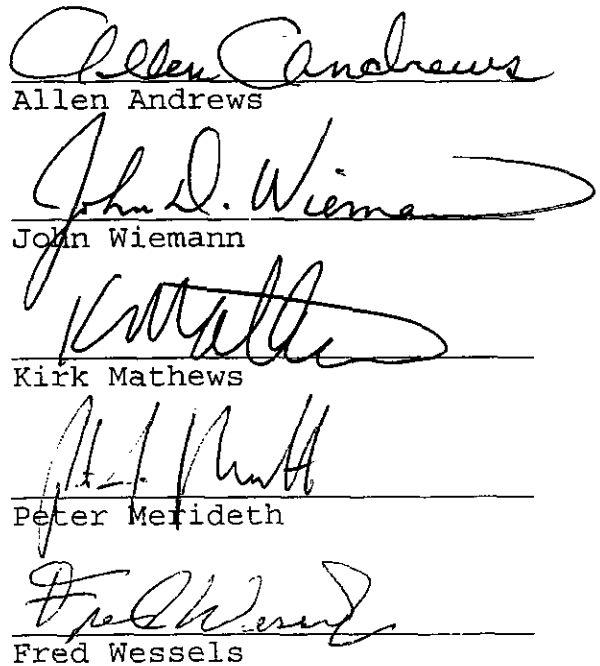 Allen Andrews
Allen Andrews
John D. Wiemann
John Wiemann
Kirk Mathews
Peter Merideth
Fred Wessels
Fred Wessels